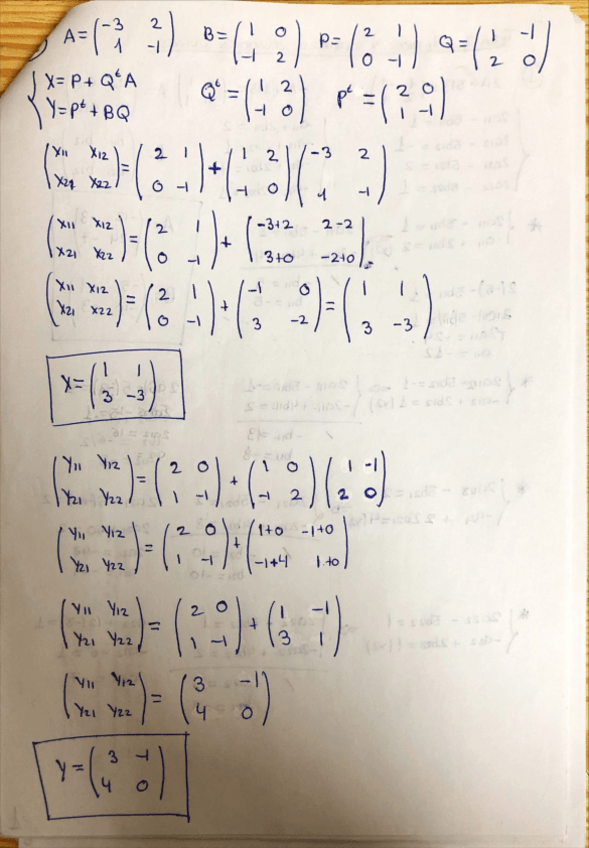 A = (-3 2; 1 -1) B = (1 0; -1 2) P = (2 1; 0 -1) Q = (1 -1; 2 0)
{ X = P + Qᵗ A
{ Y = Pᵗ + BQ
Qᵗ = (1 2; -1 0) Pᵗ = (2 0; 1 -1)
(x11 x12; x21 x22) = (2 1; 0 -1) + (1 2; -1 0) (-3 2; 1 -1)
(x11 x12; x21 x22) = (2 1; 0 -1) + (-3+2 2-2; 3+0 -2+0)
(x11 x12; x21 x22) = (2 1; 0 -1) + (-1 0; 3 -2) = (1 1; 3 -3)
X = (1 1; 3 -3)
(y11 y12; y21 y22) = (2 0; 1 -1) + (1 0; -1 2) (1 -1; 2 0)
(y11 y12; y21 y22) = (2 0; 1 -1) + (1+0 -1+0; -1+4 1+0)
(y11 y12; y21 y22) = (2 0; 1 -1) + (1 -1; 3 1)
(y11 y12; y21 y22) = (3 -1; 4 0)
Y = (3 -1; 4 0)